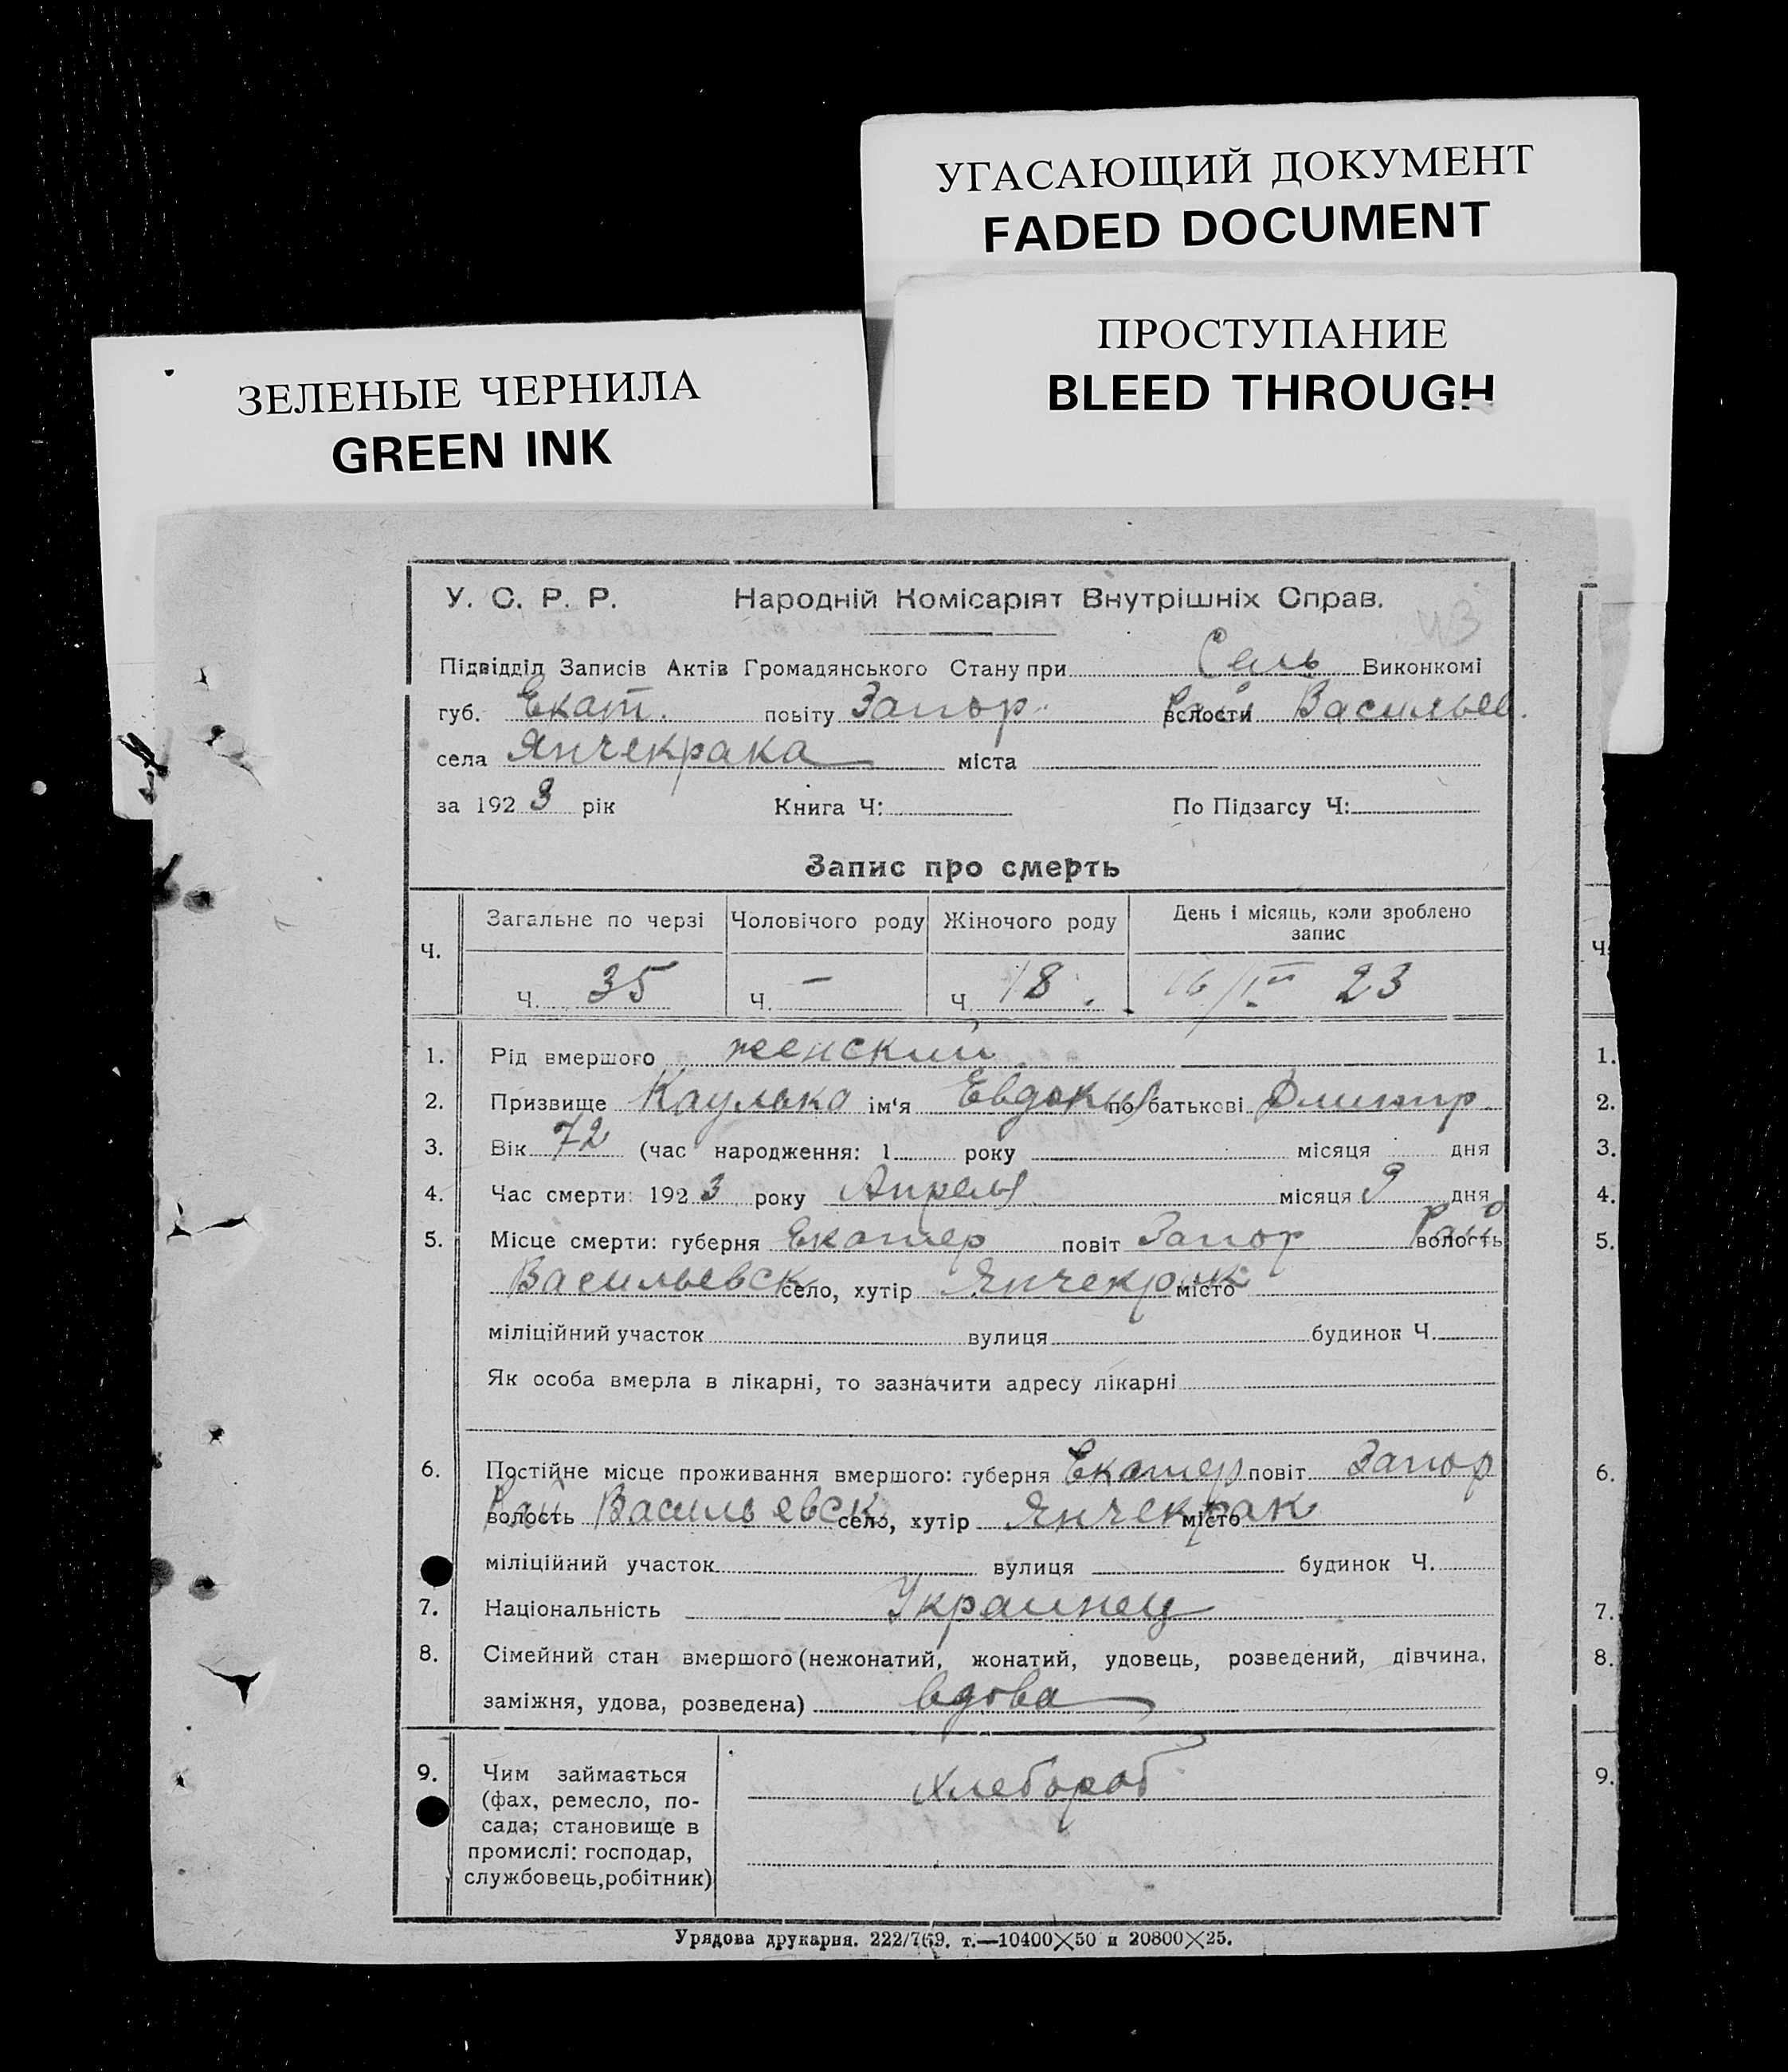 УГАСАЮЩИЙ ДОКУМЕНТ
FADED DOCUMENT
ПРОСТУПАНИЕ
BLEED THROUGH
ЗЕЛЕНЫЕ ЧЕРНИЛА
GREEN INK
У. С. Р. Р. Народній Комісаріят Внутрішніх Справ.
Підвідділ Записів Актів Громадянського Стану при Сель Виконкомі
губ. Екат. повіту Запор. волости Васильев.
села Янчекрака міста
за 1923 рік Книга Ч: По Підзагсу Ч:
Запис про смерть
Ч. Загальне по черзі Чоловічого роду Жіночого роду День і місяць, коли зроблено запис
Ч. 35 Ч. — Ч. 18. 16/IV 23
1. Рід вмершого женский
2. Призвище Каулько ім'я Евдокия по батькові Дмитр
3. Вік 72 (час народження: 1 року місяця дня
4. Час смерти: 1923 року Апреля місяця 9 дня
5. Місце смерти: губерня Екатер повіт Запор волость Рай
Васильевск село, хутір Янчекрак місто
міліційний участок вулиця будинок Ч.
Як особа вмерла в лікарні, то зазначити адресу лікарні
6. Постійне місце проживання вмершого: губерня Екатер повіт Запор
волость Рай Васильевск село, хутір Янчекрак місто
міліційний участок вулиця будинок Ч.
7. Національність Украинец
8. Сімейний стан вмершого (нежонатий, жонатий, удовець, розведений, дівчина,
заміжня, удова, розведена) вдова
9. Чим займається хлебороб
(фах, ремесло, по-
сада; становище в
промислі: господар,
службовець, робітник)
Урядова друкарня. 222/769. т.—10400×50 и 20800×25.
Ч.
1.
2.
3.
4.
5.
6.
7.
8.
9.